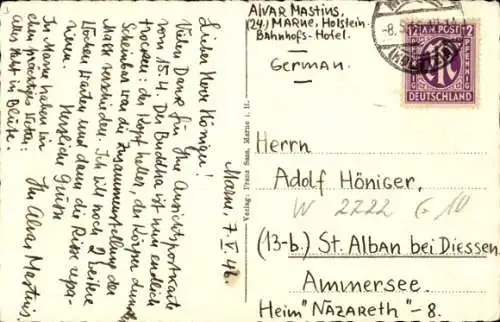 Marne, 7.V.46.
Lieber Herr Höniger!
Vielen Dank für Ihre Ansichtspostkarte
vom 15.4. Der Buddha ist nun endlich
trocken: der Kopf heller, der Körper dunkel.
Scheinbar war die Zusammenstellung der
Masse verschieden. Ich will noch 2 weitere
Wochen warten und dann die Risse repa-
rieren. Herzliche Grüße
In Marne haben wir
prächtiges Wetter:
alles steht in Blüte.
Ihr Alvar Mastins.
Alvar Mastins,
(24.) Marne, Holstein
Bahnhofs-Hotel.
German.
Verlag: Franz Sass, Marne i. H.
12 AM POST 12
PFENNIG
DEUTSCHLAND
Herrn
Adolf Höniger,
W 2722 G 10
(13-b.) St. Alban bei Diessen
Ammersee.
Heim "Nazareth" - 8.